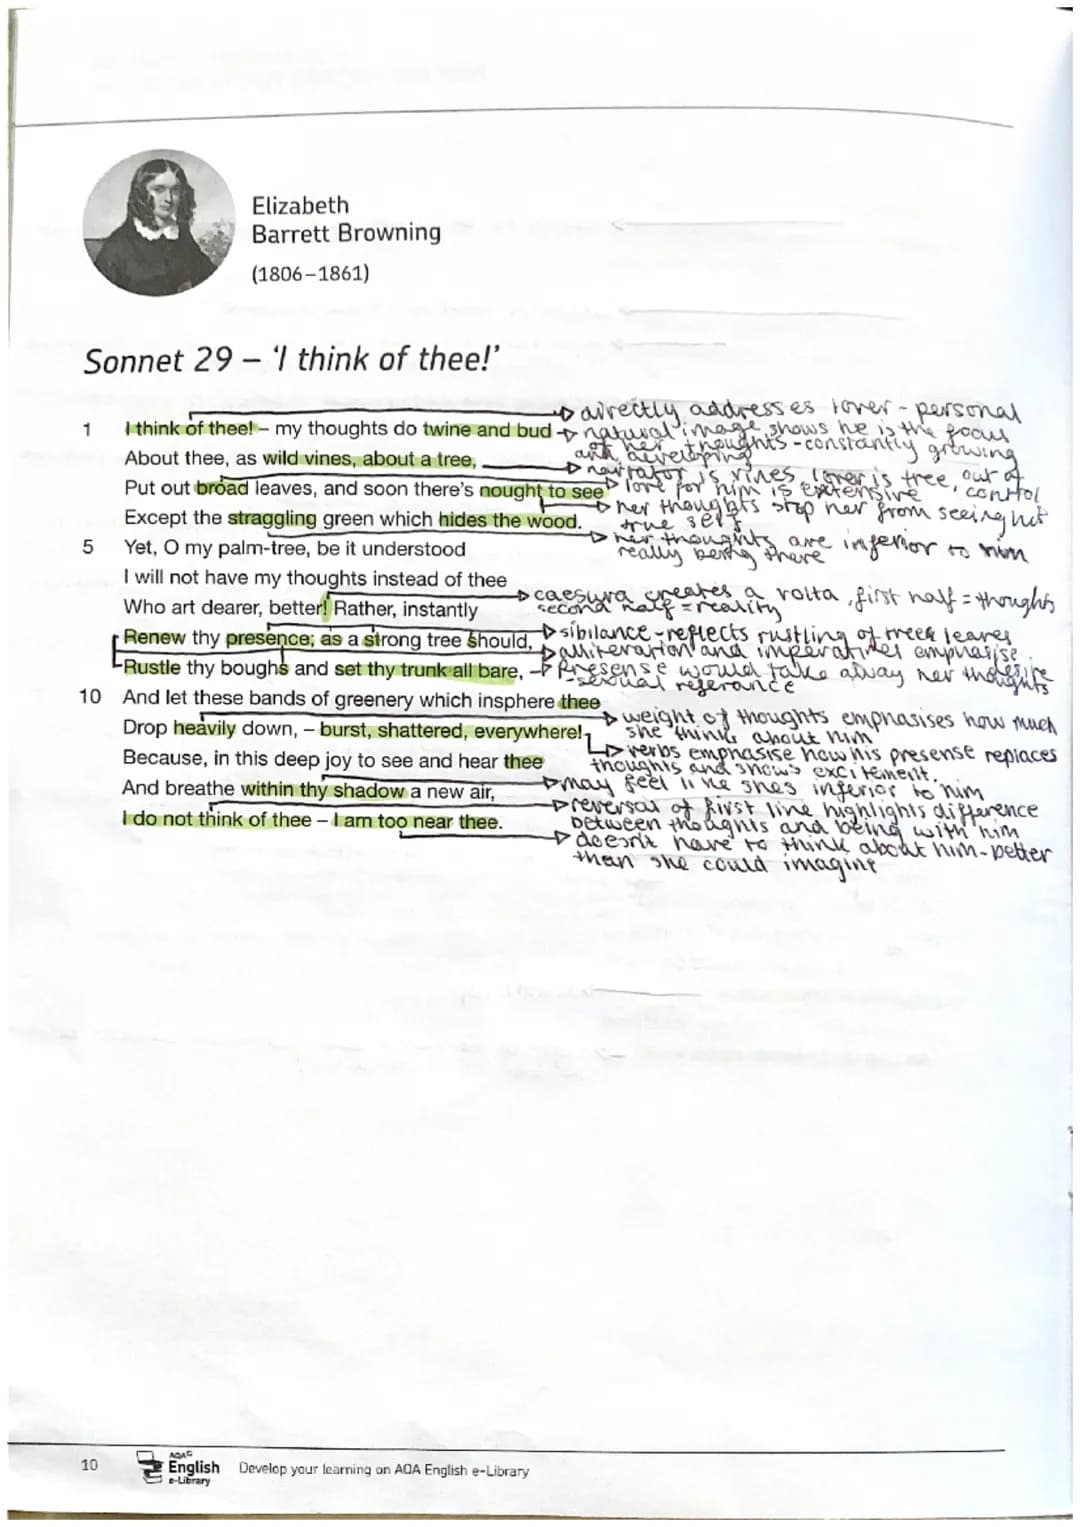 Elizabeth
Barrett Browning
(1806–1861)
Sonnet 29 – 'I think of thee!'
1 I think of thee! – my thoughts do twine and bud
About thee, as wild vines, about a tree,
Put out broad leaves, and soon there's nought to see
Except the straggling green which hides the wood.
5 Yet, O my palm-tree, be it understood
I will not have my thoughts instead of thee
Who art dearer, better! Rather, instantly
Renew thy presence; as a strong tree should,
Rustle thy boughs and set thy trunk all bare,
10 And let these bands of greenery which insphere thee
Drop heavily down, – burst, shattered, everywhere!
Because, in this deep joy to see and hear thee
And breathe within thy shadow a new air,
I do not think of thee – I am too near thee.
directly addresses lover - personal
natural image shows he is the focus
of her thoughts - constantly growing
and developing
narrator is vines, lover is tree, out of control
love for him is extensive
her thoughts stop her from seeing his
true self
her thoughts are inferior to him
really being there
caesura creates a volta, first half = thoughts
second half = reality
sibilance - reflects rustling of tree leaves
alliteration and imperatives emphasise desire
presense would take away her thoughts
- sexual referance
weight of thoughts emphasises how much
she thinks about him
verbs emphasise how his presense replaces
thoughts and shows excitement.
may feel like shes inferior to him
reversal of first line highlights difference
between thoughts and being with him
doesn't have to think about him - better
than she could imagine
10
AQA
English
e-Library
Develop your learning on AQA English e-Library